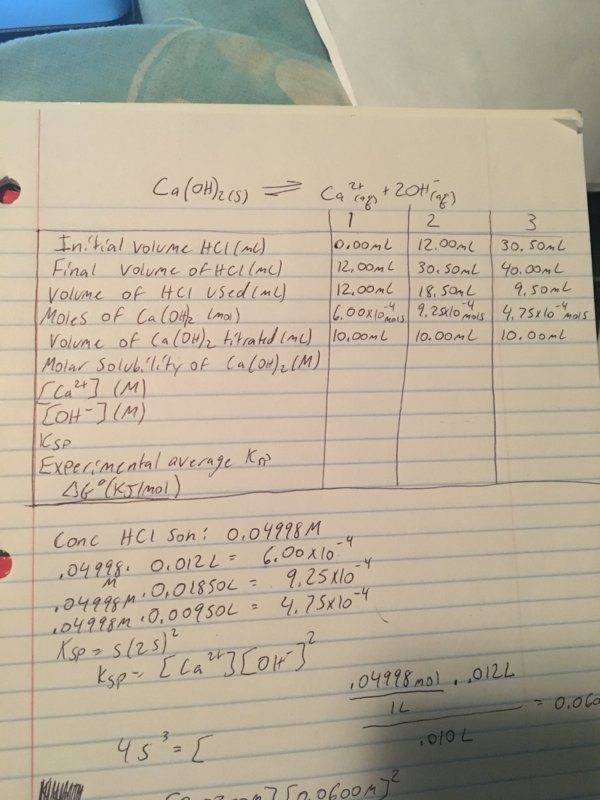 Ca(OH)₂(s) ⇌ Ca²⁺(aq) + 2OH⁻(aq)
1 2 3
Initial Volume HCl (mL) 0.00mL 12.00mL 30.50mL
Final Volume of HCl (mL) 12.00mL 30.50mL 40.00mL
Volume of HCl used (mL) 12.00mL 18.50mL 9.50mL
Moles of Ca(OH)₂ (mol) 6.00x10⁻⁴ mols 9.25x10⁻⁴ mols 4.75x10⁻⁴ mols
Volume of Ca(OH)₂ titrated (mL) 10.00mL 10.00mL 10.00mL
Molar Solubility of Ca(OH)₂ (M)
[Ca²⁺] (M)
[OH⁻] (M)
Ksp
Experimental average Ksp
ΔG° (KJ/mol)
Conc HCl Soln: 0.04998M
.04998M · 0.012L = 6.00x10⁻⁴
.04998M · 0.01850L = 9.25x10⁻⁴
.04998M · 0.00950L = 4.75x10⁻⁴
Ksp = s(2s)²
Ksp = [Ca²⁺][OH⁻]²
.04998mol / 1L · .012L / .010L = 0.060
4s³ = [
][0.0600M]²